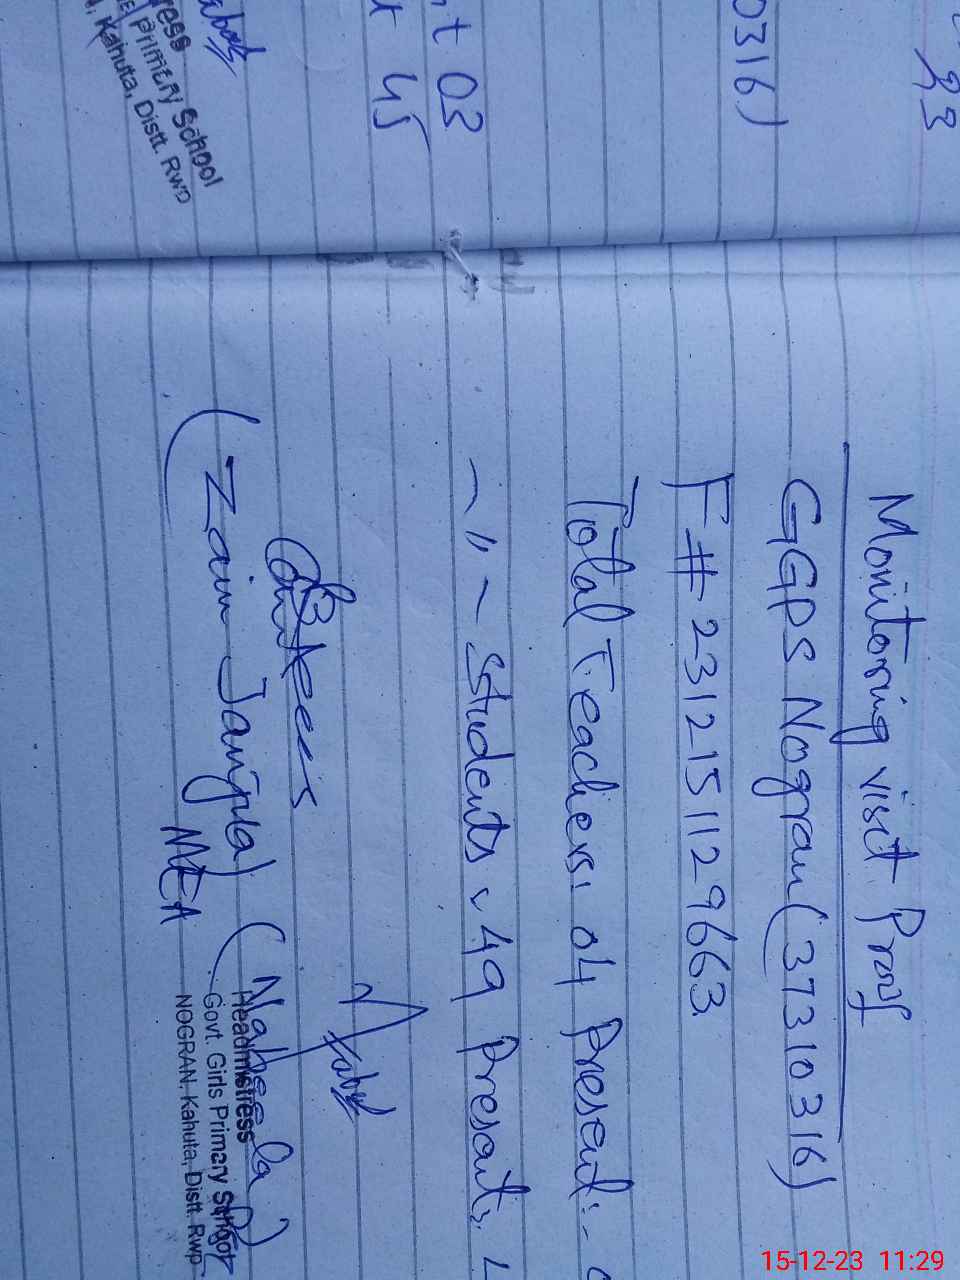 23
0316)
t 03
t 45
ress
Primary School
Kahuta, Distt. RWD
Monitoring visit Proof
GGPS Nogran (37310316)
F# 2312151129663
Total Teachers: 04 Present:-
~ " ~ Students ~ 49 Present:
(Zain Janjua) (Nabeela)
MEA
Headmistress
Govt. Girls Primary School
NOGRAN. Kahuta, Distt. Rwp
15-12-23 11:29